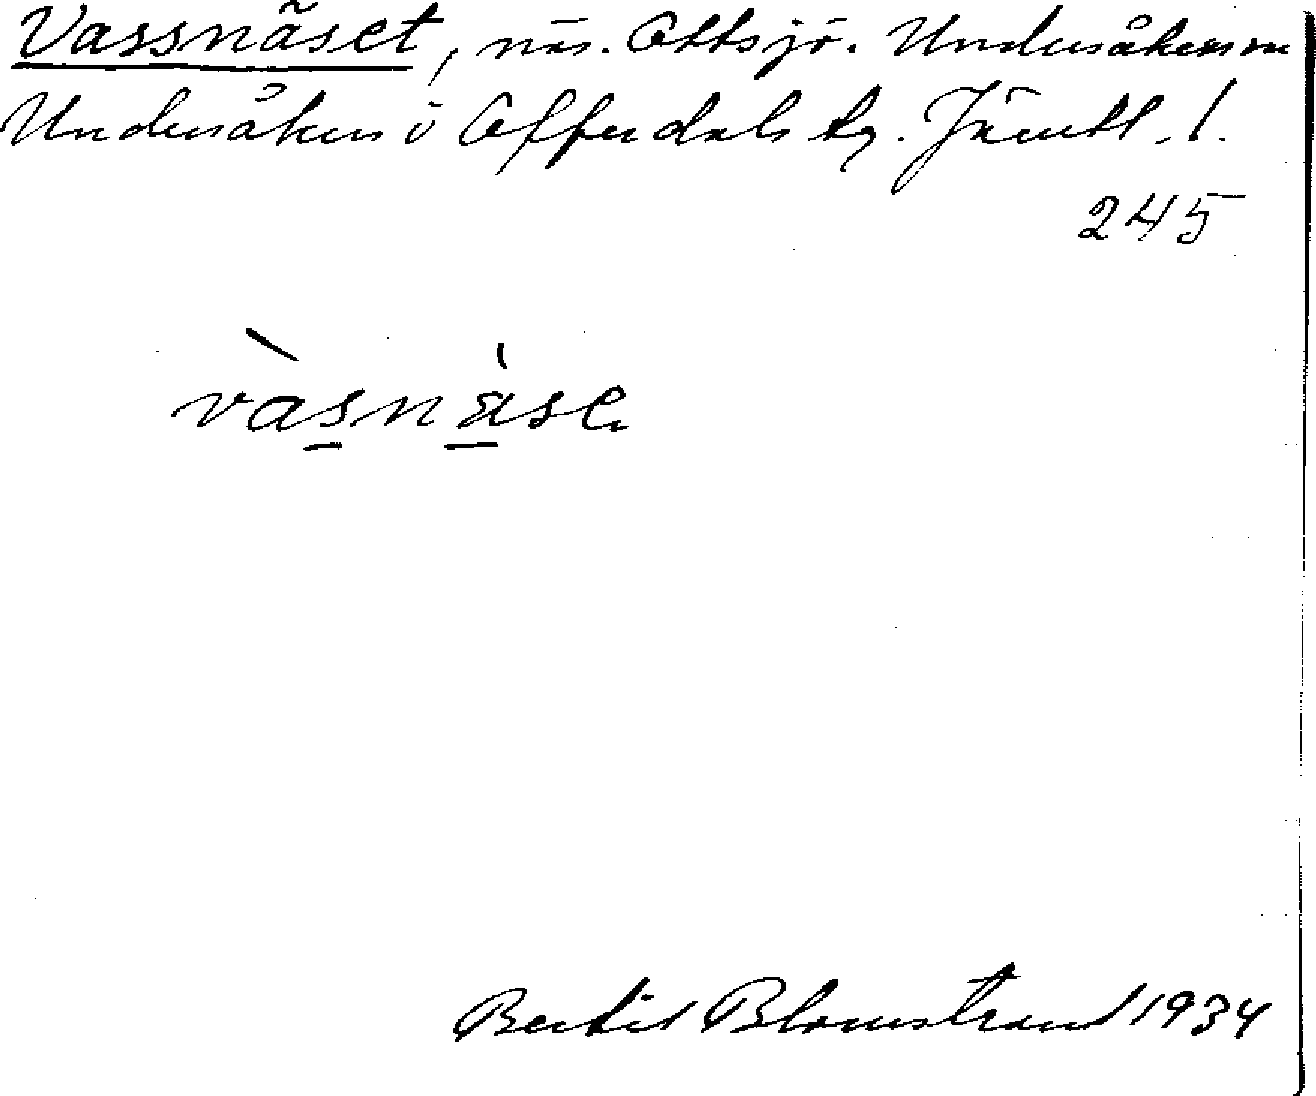 Vassnäset, näs. Ottsjö. Undersåkers sn
Undersåkers o Offerdals tg. Jämtl. l.
245
vàsnàse
Bertil Blomstrand 1934